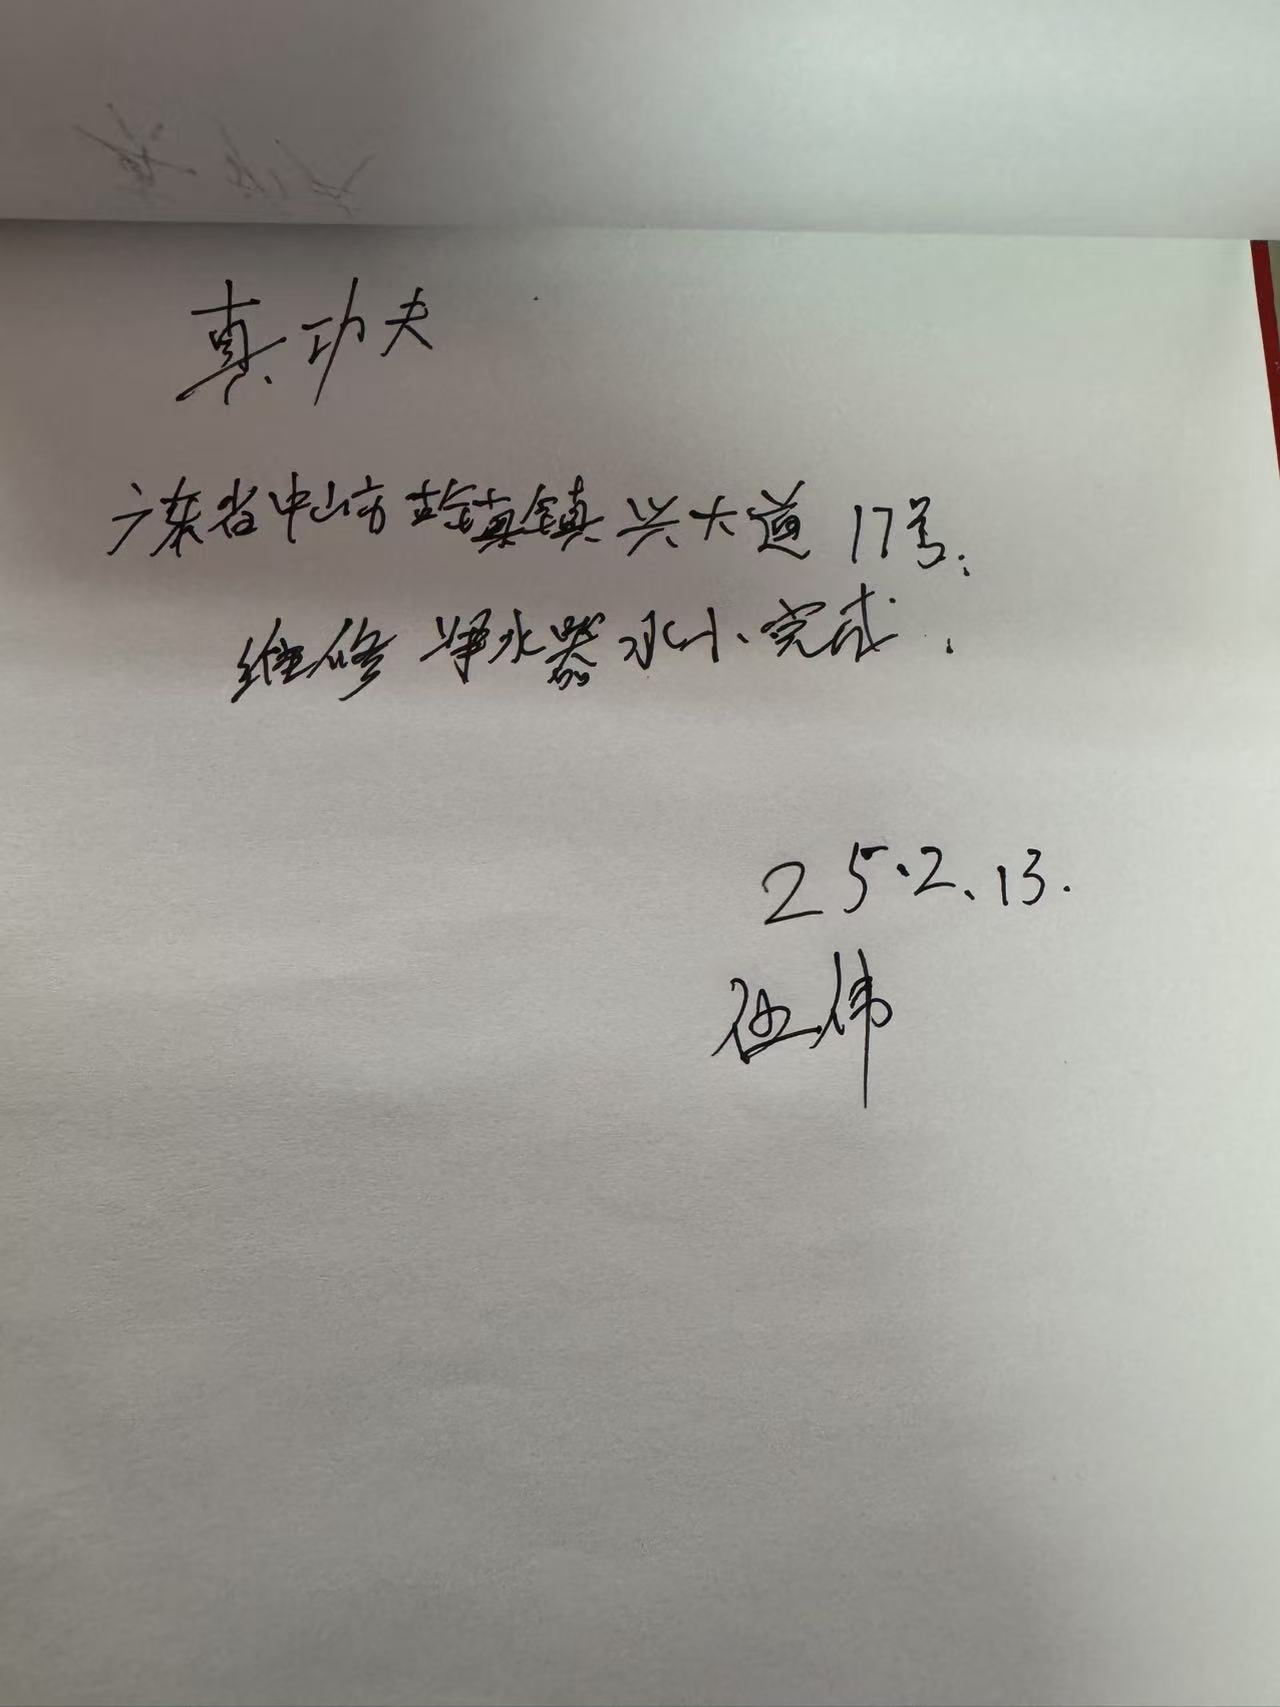 真功夫
广东省中山市古镇镇兴大道17号.
维修净水器水小完成.
25.2.13.
伍伟